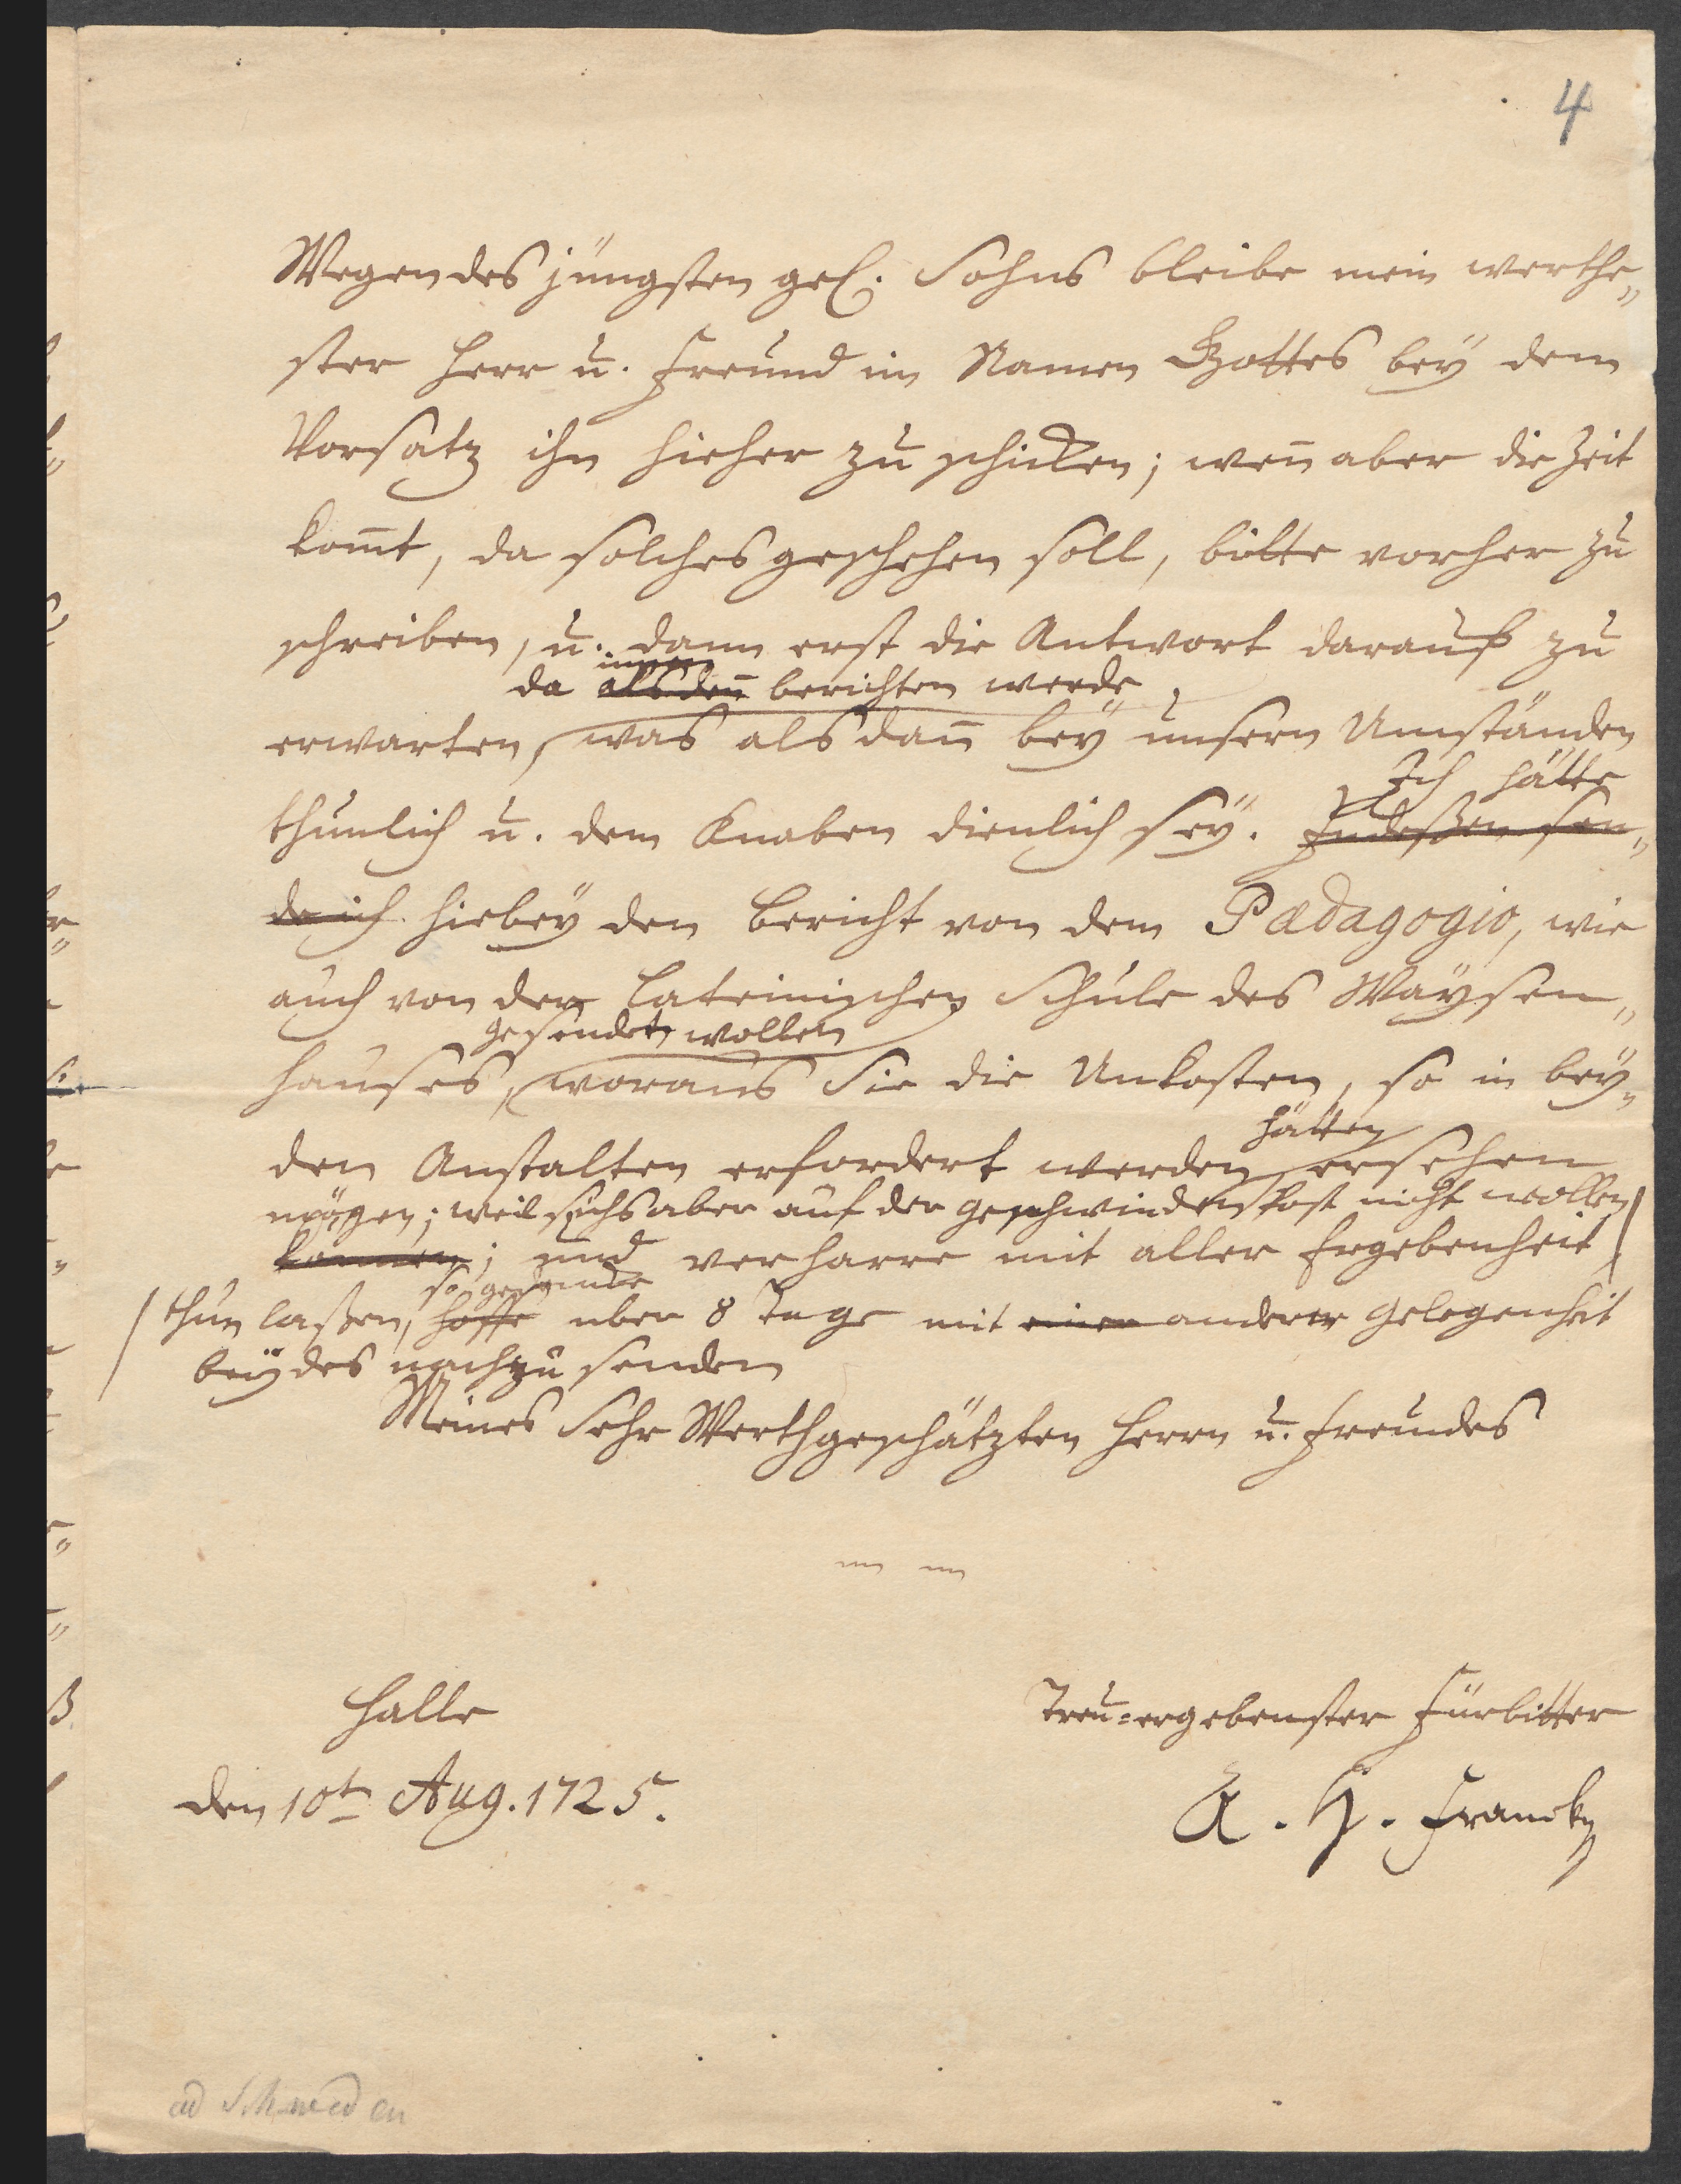 4
Wegen des jüngsten gel. Sohns bleibe mein werthe„
ster Herr u. Freund im Namen Gottes bey dem
Vorsatz ihn hieher zu schicken; wenn aber die Zeit
kommt, da solches geschehen soll, bitte vorher zu
schreiben, u. dann erst die Antwort darauf zu
da alsdenn berichten werde
erwarten, was alsdann bey unsern Umständen
Ich hätte
thunlich u. dem Knaben dienlich sey. Indeßen sen„
de ich hiebey den Bericht von dem Pædagogio, wie
auch von der Lateinischen Schule des Waysen„
gesendet wollen
hauses, woraus Sie die Unkosten, so in bey„
hätten
den Anstalten erfordert werden, ersehen
mögen; weil sichs aber auf der geschwinden Post nicht wollen
können; und verharre mit aller Ergebenheit
so gedencke
thun laßen, hoffe über 8 Tage mit einer anderer Gelegenheit
beydes nachzusenden
Meines Sehr Werthgeschätzten Herrn u. Freundes
Halle
Treu-ergebenster Fürbitter
den 10t Aug. 1725.
A. H. Francke
ad Schweden